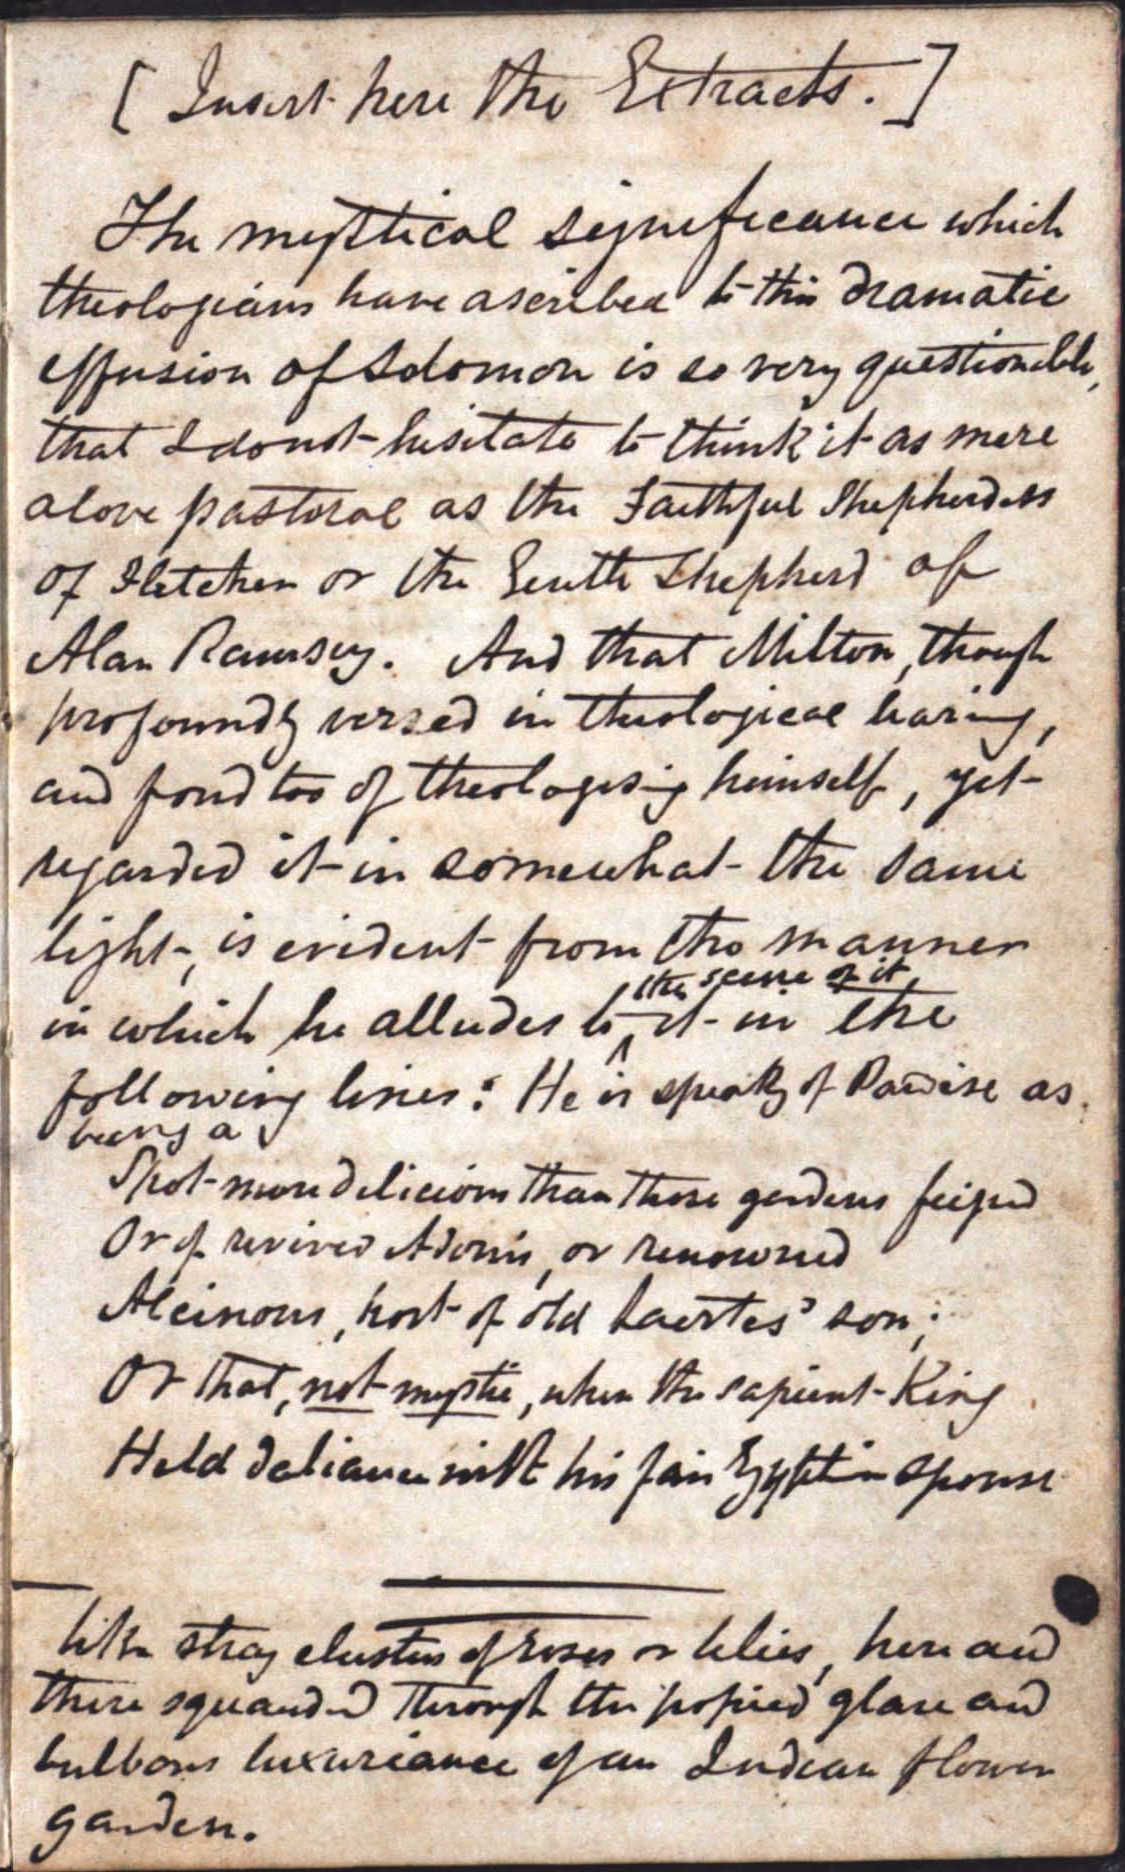 [ Insert here the Extracts. ]
The mystical significance which
theologians have ascribed to this dramatic
effusion of Solomon is so very questionable,
that I do not hesitate to think it as mere
a love pastoral as the Faithful Shepherdess
of Fletcher or the Gentle Shepherd of
Alan Ramsey. And that Milton, though
profoundly versed in theological learing,
and fond too of theologising himself, yet
regarded it in somewhat the same
light, is evident from the manner
the scene of it
in which he alludes to it in the
following lines: He is speakg of Paradise as
being a
Spot more delicious than those gardens feigned
Or of revived Adonis, or renowned
Alcinous, host of old Laertes' son;
Or that, not mystic, where the sapient King
Held daliance with his fair Egyptian spouse
like stray clusters of roses or lilies, here and
there squandered through the popied glare and
bulbous luxuriance of an Indian flower
garden.